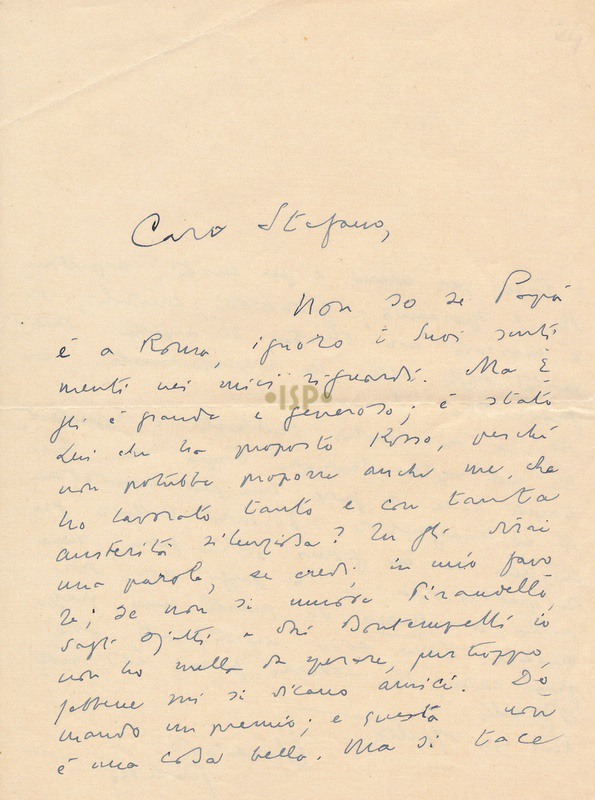 Caro Stefano,
Non so se Papà
è a Roma, ignoro i suoi senti
menti nei miei riguardi. Ma E
•ISP•
gli è grande e generoso; è stato
Lui che ha proposto Rosso, perché
non potrebbe proporre anche me, che
ho lavorato tanto e con tanta
austerità silenziosa? Tu gli dirai
una parola, se credi, in mio favo
re; se non si muove Pirandello,
dagli Ojetti e dai Bontempelli io
non ho nulla da sperare, purtroppo,
sebbene mi si dicano amici. Do
mando un premio; e questa non
è una cosa bella. Ma si tace